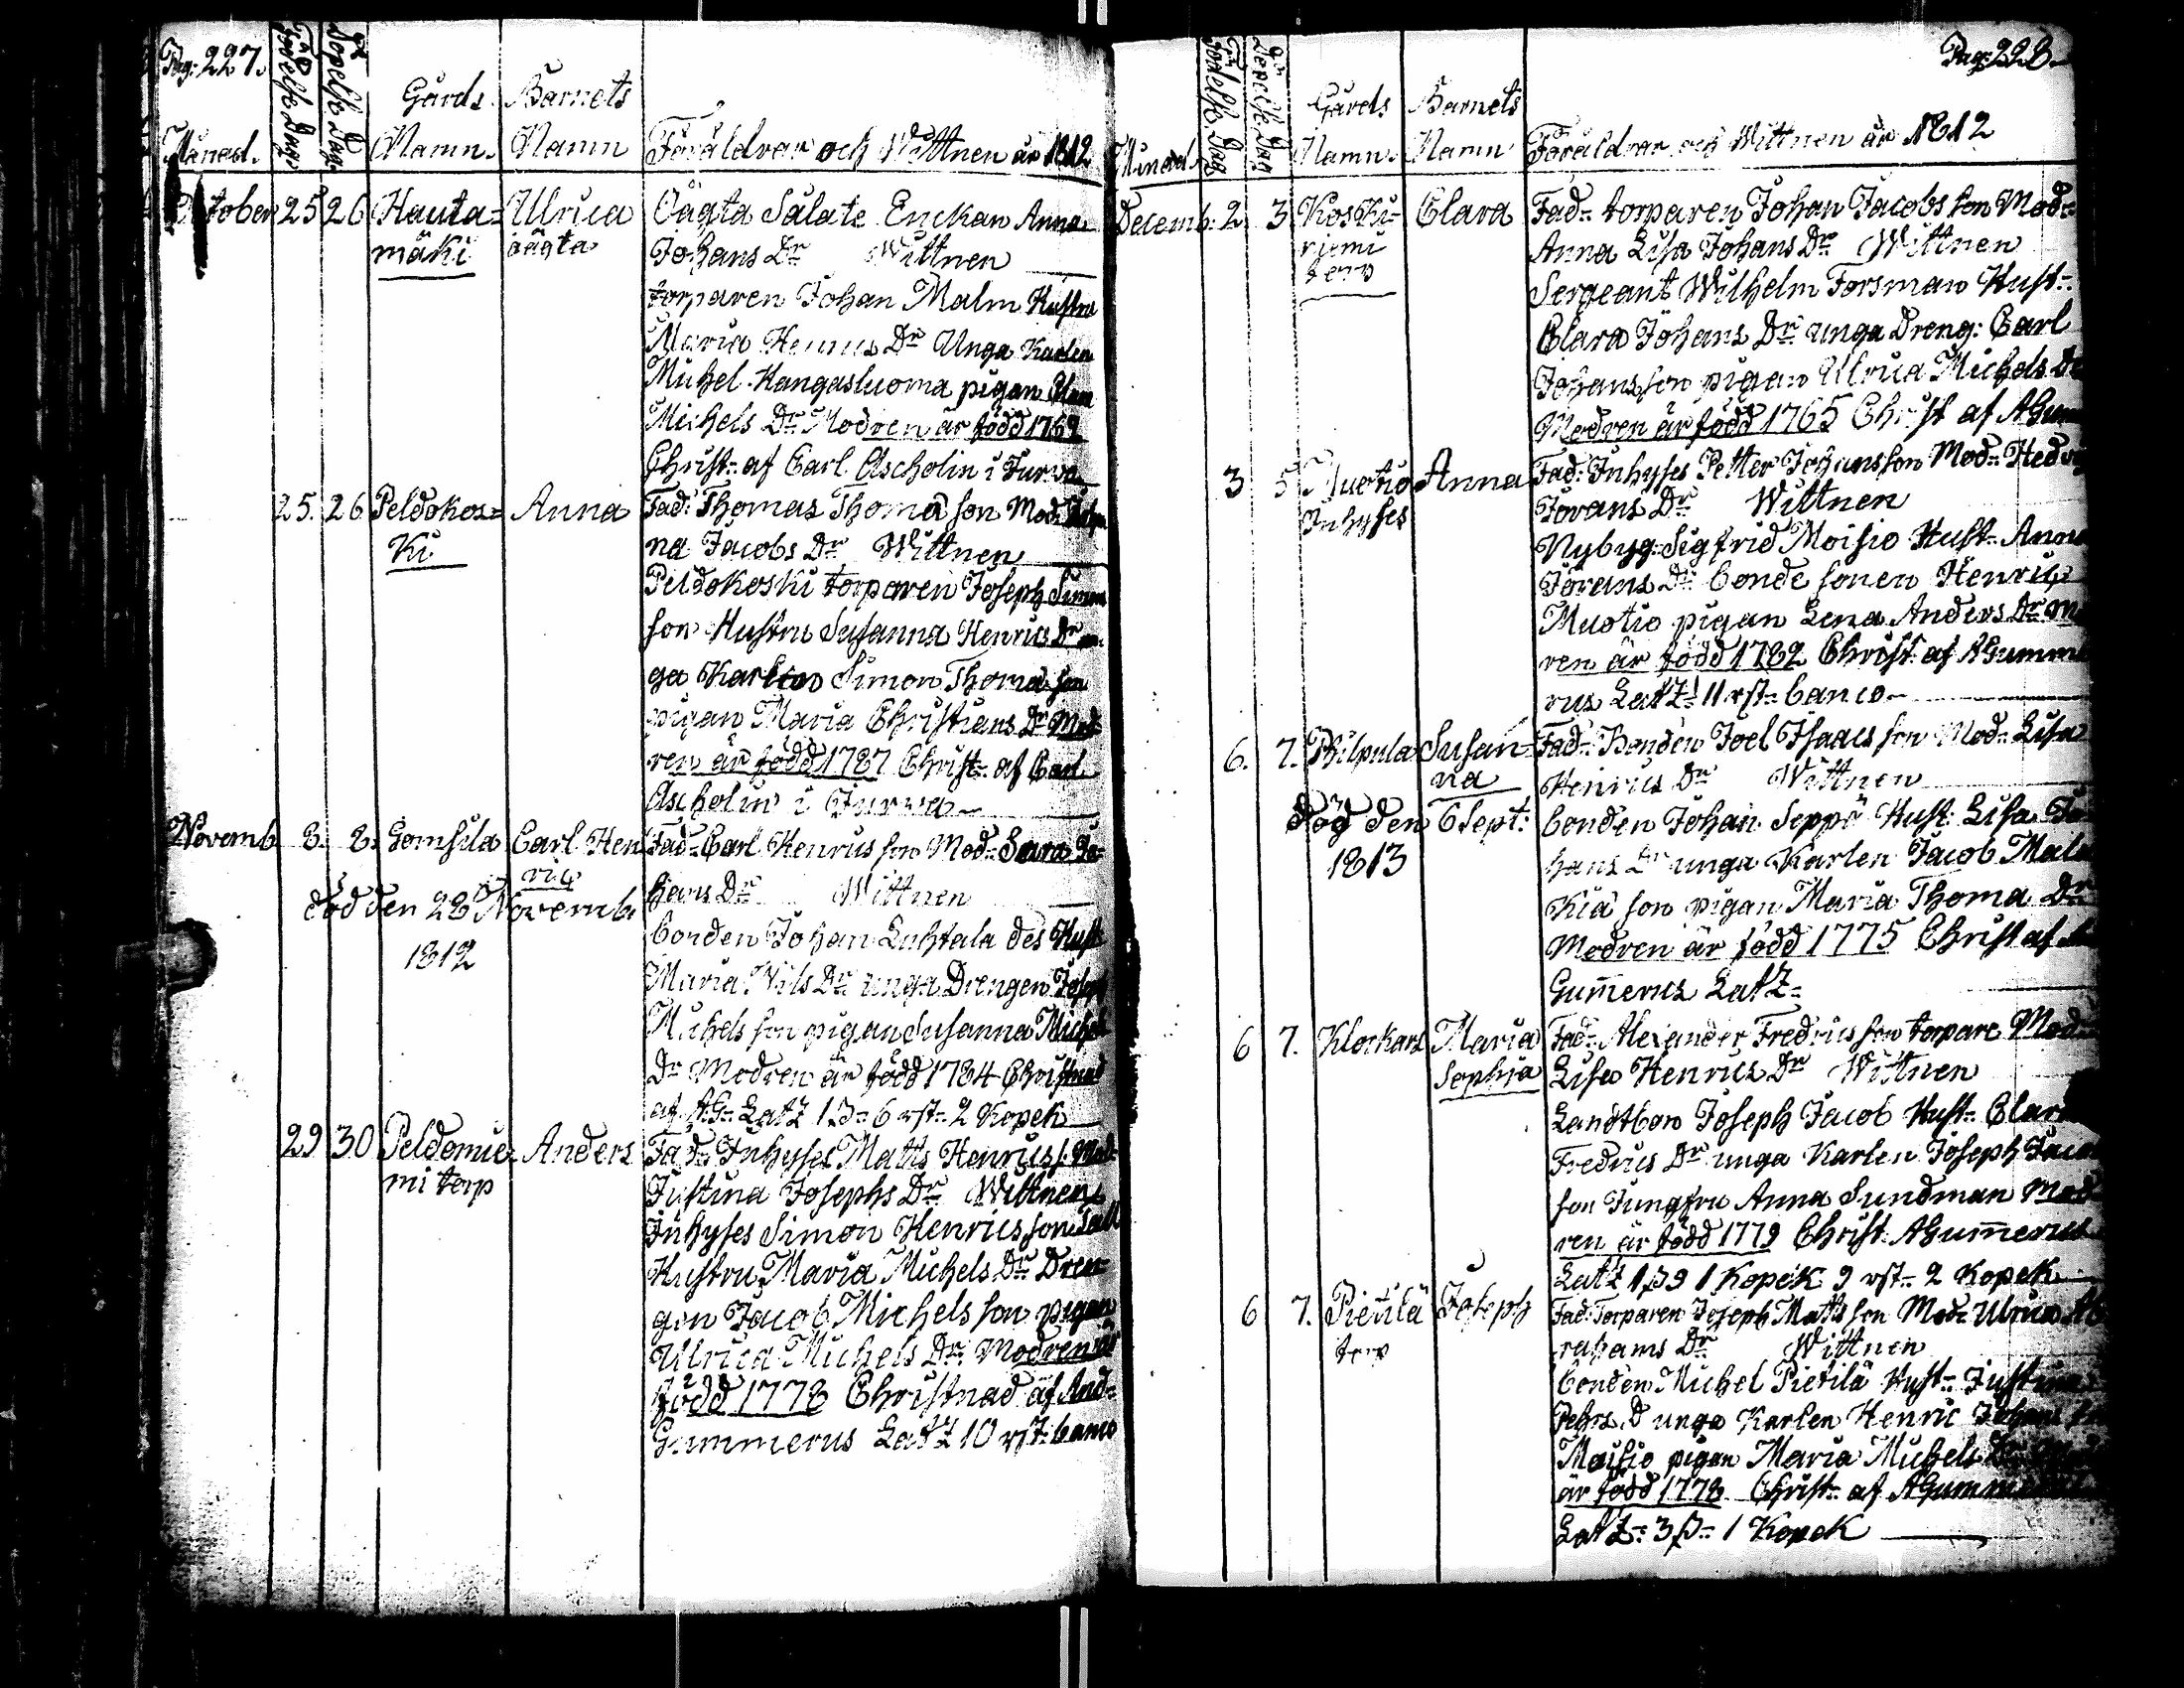 Pag: 227.
Månad. Födelse Dag Döpelse Dag Gårds Namn. Barnets Namn Föräldrar och Wittnen år 1812
October 25 26 Hauta= Ulrica Oägta Salate Enckan Anna
mäki oägta Johans Dr Wittnen
torparen Johan Malm Hustru
Maria Henrics Dr Unga Karlen
Michel Kangasluoma pigan
Michels Dr Modren är född 1769
Christ: af Carl Ascholin i Jurva
25. 26 Peldokos= Anna Fad: Thomas Thomæ son Mod:
ki na Jacobs Dr Wittnen
Peldokoski torparen Joseph Simon
son Hustru Susanna Henrics Dr un
ga Karlen Simon Thomæ son
pigan Maria Christians Dr Mod
ren är född 1787 Christ: af Carl
Ascholin i Jurva
Novemb 8. 8. Gomsila Carl Hen Fad: Carl Henrics son Mod: Sara Jo=
ric hans Dr Wittnen
död den 28 Novemb.
1812
bonden Johan Luhtala des Hust
Maria Nils Dr unga Drengen Joseph
Michels son pigan Susanna Michels
Dr Modren är född 1784 Christnad
af A:G: LatZ 1 β: 6 rst: 2 Kopek
29 30 Peldonie= Anders Fad: Inhyses Matts Henrics s. Mod
mi torp Justina Josephs Dr Wittnen
Inhyses Simon Henrics son Sall
Hustru Maria Michels Dr Dren=
gen Jacob Michels son pigan
Ulrica Michels Dr Modren är
född 1778 Christnad af And=
Gummerus LatZ 10 rst: banco
Pag: 228
Månad Födelse Dag Döpelse Dag Gårds Namn. Barnets Namn Föräldrar och Wittnen år 1812
Decemb: 2. 3 Koski= Clara Fad: torparen Johan Jacobs son Mod:
niemi Anna Lisa Johans Dr Wittnen
torp Sergeant Wilhelm Forsman Hust:
Clara Johans Dr unga Dreng: Carl
Johans son pigan Ulrica Michels Dr
Modren är född 1765 Christ af AGum
3 5 Muotio Anna Fad: Inhyses Petter Johans son Mod: Hedvig
Inhyses Jörans Dr Wittnen
Nybyg: Sigfrid Moisio Hust: Anna
Jörans Dr bonde sonen Henric
Muotio pigan Lena Anders Dr Mo
ren är född 1782 Christ: af AGumme
rus LatZ: 11 rst: banco
6. 7. Philpula Susan= Fad: Bonden Joel Isaacs son Mod: Lisa
na Henrics Dr Wittnen
död den 6 Sept: bonden Johan Seppä Hust: Lisa Jo
1813 hans Dr unga Karlen Jacob Mala
kia son pigan Maria Thomæ Dr
Modren är född 1775 Christ af A
Gum̄erus LatZ=
6 7. Klockars Maria Fad: Alexander Fredrics son torpare Mod
Sophia Lisa Henrics Dr Wittnen
Landtbon Joseph Jacob Hust: Clara
Fredrics Dr unga Karlen Joseph Jacob
son Jungfru Anna Sundman Mod
ren är född 1779 Christ. AGum̄erus
LatZ 1 β 9 1 Kopek 9 rst: 2 Kopek
6 7. Pietilä Joseph Fad: Torparen Joseph Matts son Mod: Ulrica Ab
torp rahams Dr Wittnen
bonden Michel Pietilä Hust: Justina
Pehrs D unga Karlen Henric Johans
Moisio pigan Maria Michels Dr
är född 1778 Christ: af AGumm
LatZ: 3 β: 1 Kopek